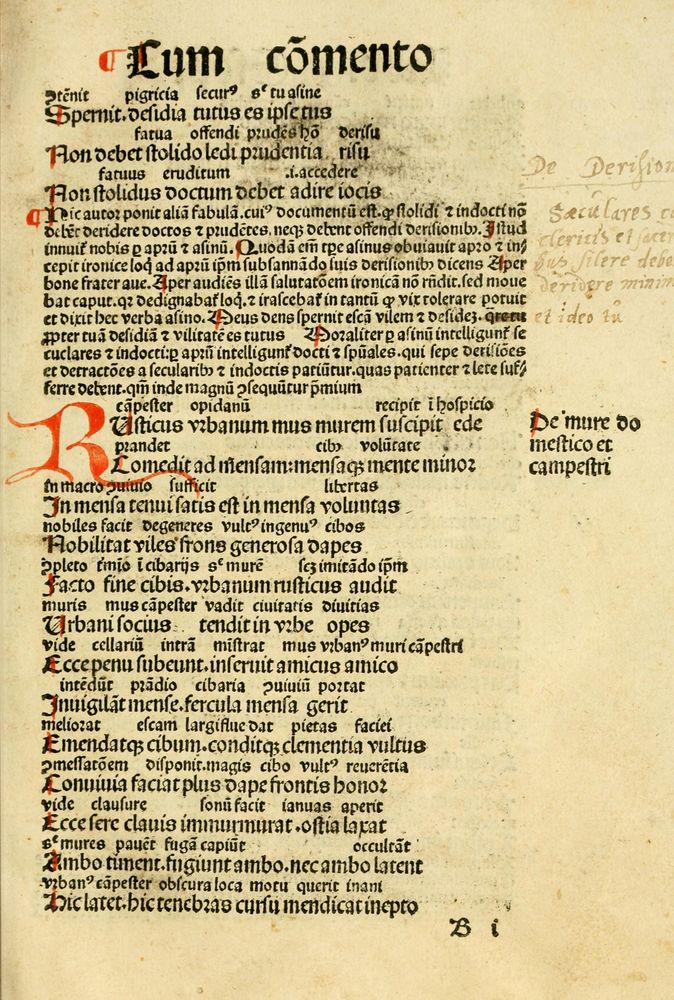 ¶ Cum cōmento
ꝯtēnit pigricia securꝰ sᶜ tu asine
Spernit.desidia tutus es ipse tus
fatua offendi prudēs hō derisu
Non debet stolido ledi prudentia risu
fatuus eruditum .i.accedere
Non stolidus doctum debet adire iocis
¶ Hic autor ponit aliā fabulā.cuiꝰ documentū est.ꝙ stolidi ⁊ indocti nō
debēt deridere doctos ⁊ prudētes. neqꝫ debent offendi derisionibꝫ. Istud
innuit nobis ꝑ aprū ⁊ asinū. Quodā em̄ tꝑe asinus obuiauit apro ⁊ in⸗
cepit ironice loq̄ ad aprum ip̄m subsannādo suis derisionibꝫ dicens Aper
bone frater aue. Aper audiēs illā salutatōem ironicā nō rn̄dit. sed moue
bat caput. qꝛ dedignabat̄ loq̄. ⁊ irascebat̄ in tantū ꝙ vix tolerare potuit
et dixit hec verba asino. Meus dens spernit escā vilem ⁊ desideꝫ.
ꝓpter tuā desidiā ⁊ vilitatē es tutus Moraliter ꝑ asinū intelligunt̄ se
culares ⁊ indocti: ꝑ aprū intelligunt̄ docti ⁊ sp̄uales. qui sepe derisiōes
et detractōes a secularibꝫ ⁊ indoctis patiūtur. quas patienter ⁊ lete suf⸗
ferre debent. qm̄ inde magnū ꝯsequūtur p̄mium
cāpester opidanū recipit ī hospicio
RUsticus vrbanum mus murem suscipit ede
prandet cibꝫ volūtate
Comedit ad mēnsam: mensaqꝫ mente minor
in macro ꝯuiuio sufficit libertas
In mensa tenui satis est in mensa voluntas
nobiles facit degeneres vultꝰ ingenuꝰ cibos
Nobilitat viles frons generosa dapes
ꝯpleto ī cibarijs sᶜ murē scꝫ imitādo ip̄m
Facto fine cibis.vrbanum rusticus audit
muris mus cāpester vadit ciuitatis diuitias
Urbani socius tendit in vrbe opes
vide cellariū intrā mīstrat mus vrbanꝰ muri cāpestri
Ecce penu subeunt.inseruit amicus amico
intēdūt prādio cibaria ꝯuiuiū portat
Inuigilāt mense.fercula mensa gerit
meliorat escam largiflue dat pietas faciei
Emendatqꝫ cibum.conditqꝫ clementia vultus
ꝯmessatōem disponit.magis cibo vultꝰ reuerētia
Conuiuia faciat plus dape frontis honor
vide clausure sonū facit ianuas aperit
Ecce sere clauis immurmurat.ostia laxat
sᶜ mures pauēt fugā capiūt occultāt
Ambo timent.fugiunt ambo.nec ambo latent
vrbanꝰ cāpester obscura loca motu querit inani
Hic latet.hic tenebras cursu mendicat inepto
B i
De mure do
mestico et
campestri
De Derision
Sæculares
clericis et sacer
deridere minim
et ideo tu